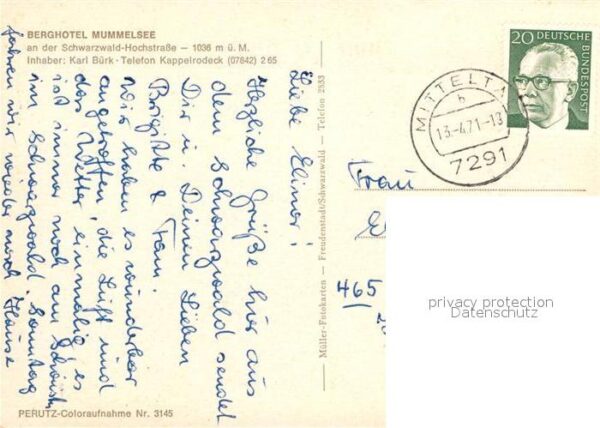 BERGHOTEL MUMMELSEE
an der Schwarzwald-Hochstraße – 1036 m ü. M.
Inhaber: Karl Bürk · Telefon Kappelrodeck (07842) 2 65
Liebe Elinor!
Herzliche Grüße hier aus
dem Schwarzwald sendet
Dir u. Deinen Lieben
Brigitte & Fam.
Wir haben es wunderbar
angetroffen, die Luft und
das Wetter einmalig, es
ist immer noch am schönsten
im Schwarzwald. Sonntag
fahren wir wieder nach Hause
PERUTZ-Coloraufnahme Nr. 3145
Müller-Fotokarten – Freudenstadt/Schwarzwald – Telefon 2533
MITTELTAL
b
13.-4.71.-13
7291
20 DEUTSCHE
BUNDESPOST
Frau
465
privacy protection
Datenschutz